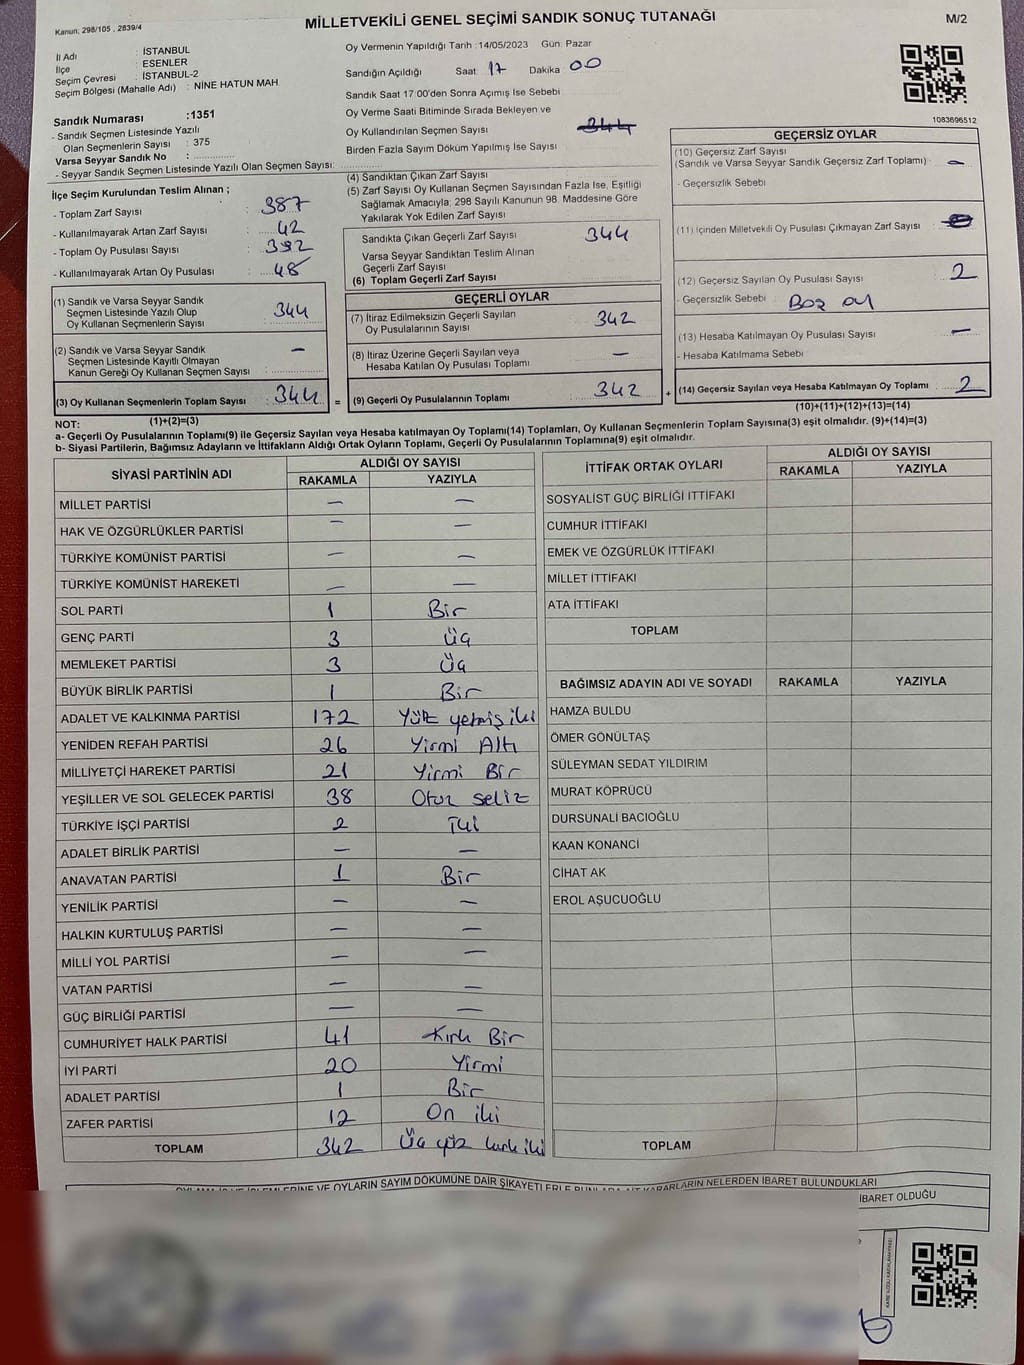 Kanun: 298/105 , 2839/4
MİLLETVEKİLİ GENEL SEÇİMİ SANDIK SONUÇ TUTANAĞI
M/2
İl Adı : İSTANBUL
İlçe : ESENLER
Seçim Çevresi : İSTANBUL-2
Seçim Bölgesi (Mahalle Adı) : NİNE HATUN MAH.
Sandık Numarası :1351
- Sandık Seçmen Listesinde Yazılı
Olan Seçmenlerin Sayısı : 375
Varsa Seyyar Sandık No :
- Seyyar Sandık Seçmen Listesinde Yazılı Olan Seçmen Sayısı:
Oy Vermenin Yapıldığı Tarih :14/05/2023 Gün: Pazar
Sandığın Açıldığı Saat: 17 Dakika 00
Sandık Saat 17:00'den Sonra Açımış İse Sebebi
Oy Verme Saati Bitiminde Sırada Bekleyen ve
Oy Kullandırılan Seçmen Sayısı 344
Birden Fazla Sayım Döküm Yapılmış İse Sayısı
1083696512
İlçe Seçim Kurulundan Teslim Alınan ;
- Toplam Zarf Sayısı : 387
- Kullanılmayarak Artan Zarf Sayısı : 42
- Toplam Oy Pusulası Sayısı : 392
- Kullanılmayarak Artan Oy Pusulası : 48
(1) Sandık ve Varsa Seyyar Sandık
Seçmen Listesinde Yazılı Olup
Oy Kullanan Seçmenlerin Sayısı : 344
(2) Sandık ve Varsa Seyyar Sandık
Seçmen Listesinde Kayıtlı Olmayan
Kanun Gereği Oy Kullanan Seçmen Sayısı : —
(3) Oy Kullanan Seçmenlerin Toplam Sayısı : 344 =
(4) Sandıktan Çıkan Zarf Sayısı
(5) Zarf Sayısı Oy Kullanan Seçmen Sayısından Fazla İse, Eşitliği
Sağlamak Amacıyla; 298 Sayılı Kanunun 98. Maddesine Göre
Yakılarak Yok Edilen Zarf Sayısı
Sandıkta Çıkan Geçerli Zarf Sayısı 344
Varsa Seyyar Sandıktan Teslim Alınan
Geçerli Zarf Sayısı
(6) Toplam Geçerli Zarf Sayısı
GEÇERLİ OYLAR
(7) İtiraz Edilmeksizin Geçerli Sayılan
Oy Pusulalarının Sayısı 342
(8) İtiraz Üzerine Geçerli Sayılan veya
Hesaba Katılan Oy Pusulası Toplamı —
(9) Geçerli Oy Pusulalarının Toplamı 342 +
GEÇERSİZ OYLAR
(10) Geçersiz Zarf Sayısı
(Sandık ve Varsa Seyyar Sandık Geçersiz Zarf Toplamı) —
- Geçersizlik Sebebi
(11) İçinden Milletvekili Oy Pusulası Çıkmayan Zarf Sayısı
(12) Geçersiz Sayılan Oy Pusulası Sayısı 2
- Geçersizlik Sebebi : Boş oy
(13) Hesaba Katılmayan Oy Pusulası Sayısı —
- Hesaba Katılmama Sebebi
(14) Geçersiz Sayılan veya Hesaba Katılmayan Oy Toplamı 2
NOT: (1)+(2)=(3)
(10)+(11)+(12)+(13)=(14)
a- Geçerli Oy Pusulalarının Toplamı(9) ile Geçersiz Sayılan veya Hesaba katılmayan Oy Toplamı(14) Toplamları, Oy Kullanan Seçmenlerin Toplam Sayısına(3) eşit olmalıdır. (9)+(14)=(3)
b- Siyasi Partilerin, Bağımsız Adayların ve İttifakların Aldığı Ortak Oyların Toplamı, Geçerli Oy Pusulalarının Toplamına(9) eşit olmalıdır.
SİYASİ PARTİNİN ADI ALDIĞI OY SAYISI
RAKAMLA YAZIYLA
MİLLET PARTİSİ — —
HAK VE ÖZGÜRLÜKLER PARTİSİ — —
TÜRKİYE KOMÜNİST PARTİSİ — —
TÜRKİYE KOMÜNİST HAREKETİ — —
SOL PARTİ 1 Bir
GENÇ PARTİ 3 Üç
MEMLEKET PARTİSİ 3 Üç
BÜYÜK BİRLİK PARTİSİ 1 Bir
ADALET VE KALKINMA PARTİSİ 172 Yüz yetmiş iki
YENİDEN REFAH PARTİSİ 26 Yirmi Altı
MİLLİYETÇİ HAREKET PARTİSİ 21 Yirmi Bir
YEŞİLLER VE SOL GELECEK PARTİSİ 38 Otuz sekiz
TÜRKİYE İŞÇİ PARTİSİ 2 İki
ADALET BİRLİK PARTİSİ — —
ANAVATAN PARTİSİ 1 Bir
YENİLİK PARTİSİ — —
HALKIN KURTULUŞ PARTİSİ — —
MİLLİ YOL PARTİSİ — —
VATAN PARTİSİ — —
GÜÇ BİRLİĞİ PARTİSİ — —
CUMHURİYET HALK PARTİSİ 41 Kırk Bir
İYİ PARTİ 20 Yirmi
ADALET PARTİSİ 1 Bir
ZAFER PARTİSİ 12 On iki
TOPLAM 342 Üç yüz kırk iki
İTTİFAK ORTAK OYLARI ALDIĞI OY SAYISI
RAKAMLA YAZIYLA
SOSYALİST GÜÇ BİRLİĞİ İTTİFAKI
CUMHUR İTTİFAKI
EMEK VE ÖZGÜRLÜK İTTİFAKI
MİLLET İTTİFAKI
ATA İTTİFAKI
TOPLAM
BAĞIMSIZ ADAYIN ADI VE SOYADI RAKAMLA YAZIYLA
HAMZA BULDU
ÖMER GÖNÜLTAŞ
SÜLEYMAN SEDAT YILDIRIM
MURAT KÖPRÜCÜ
DURSUNALİ BACIOĞLU
KAAN KONANCİ
CİHAT AK
EROL AŞUCUOĞLU
TOPLAM
OYLAMA İŞ VE İŞLEMLERİNE VE OYLARIN SAYIM DÖKÜMÜNE DAİR ŞİKAYETLERLE BUNLARA AİT KARARLARIN NELERDEN İBARET BULUNDUKLARI
İBARET OLDUĞU